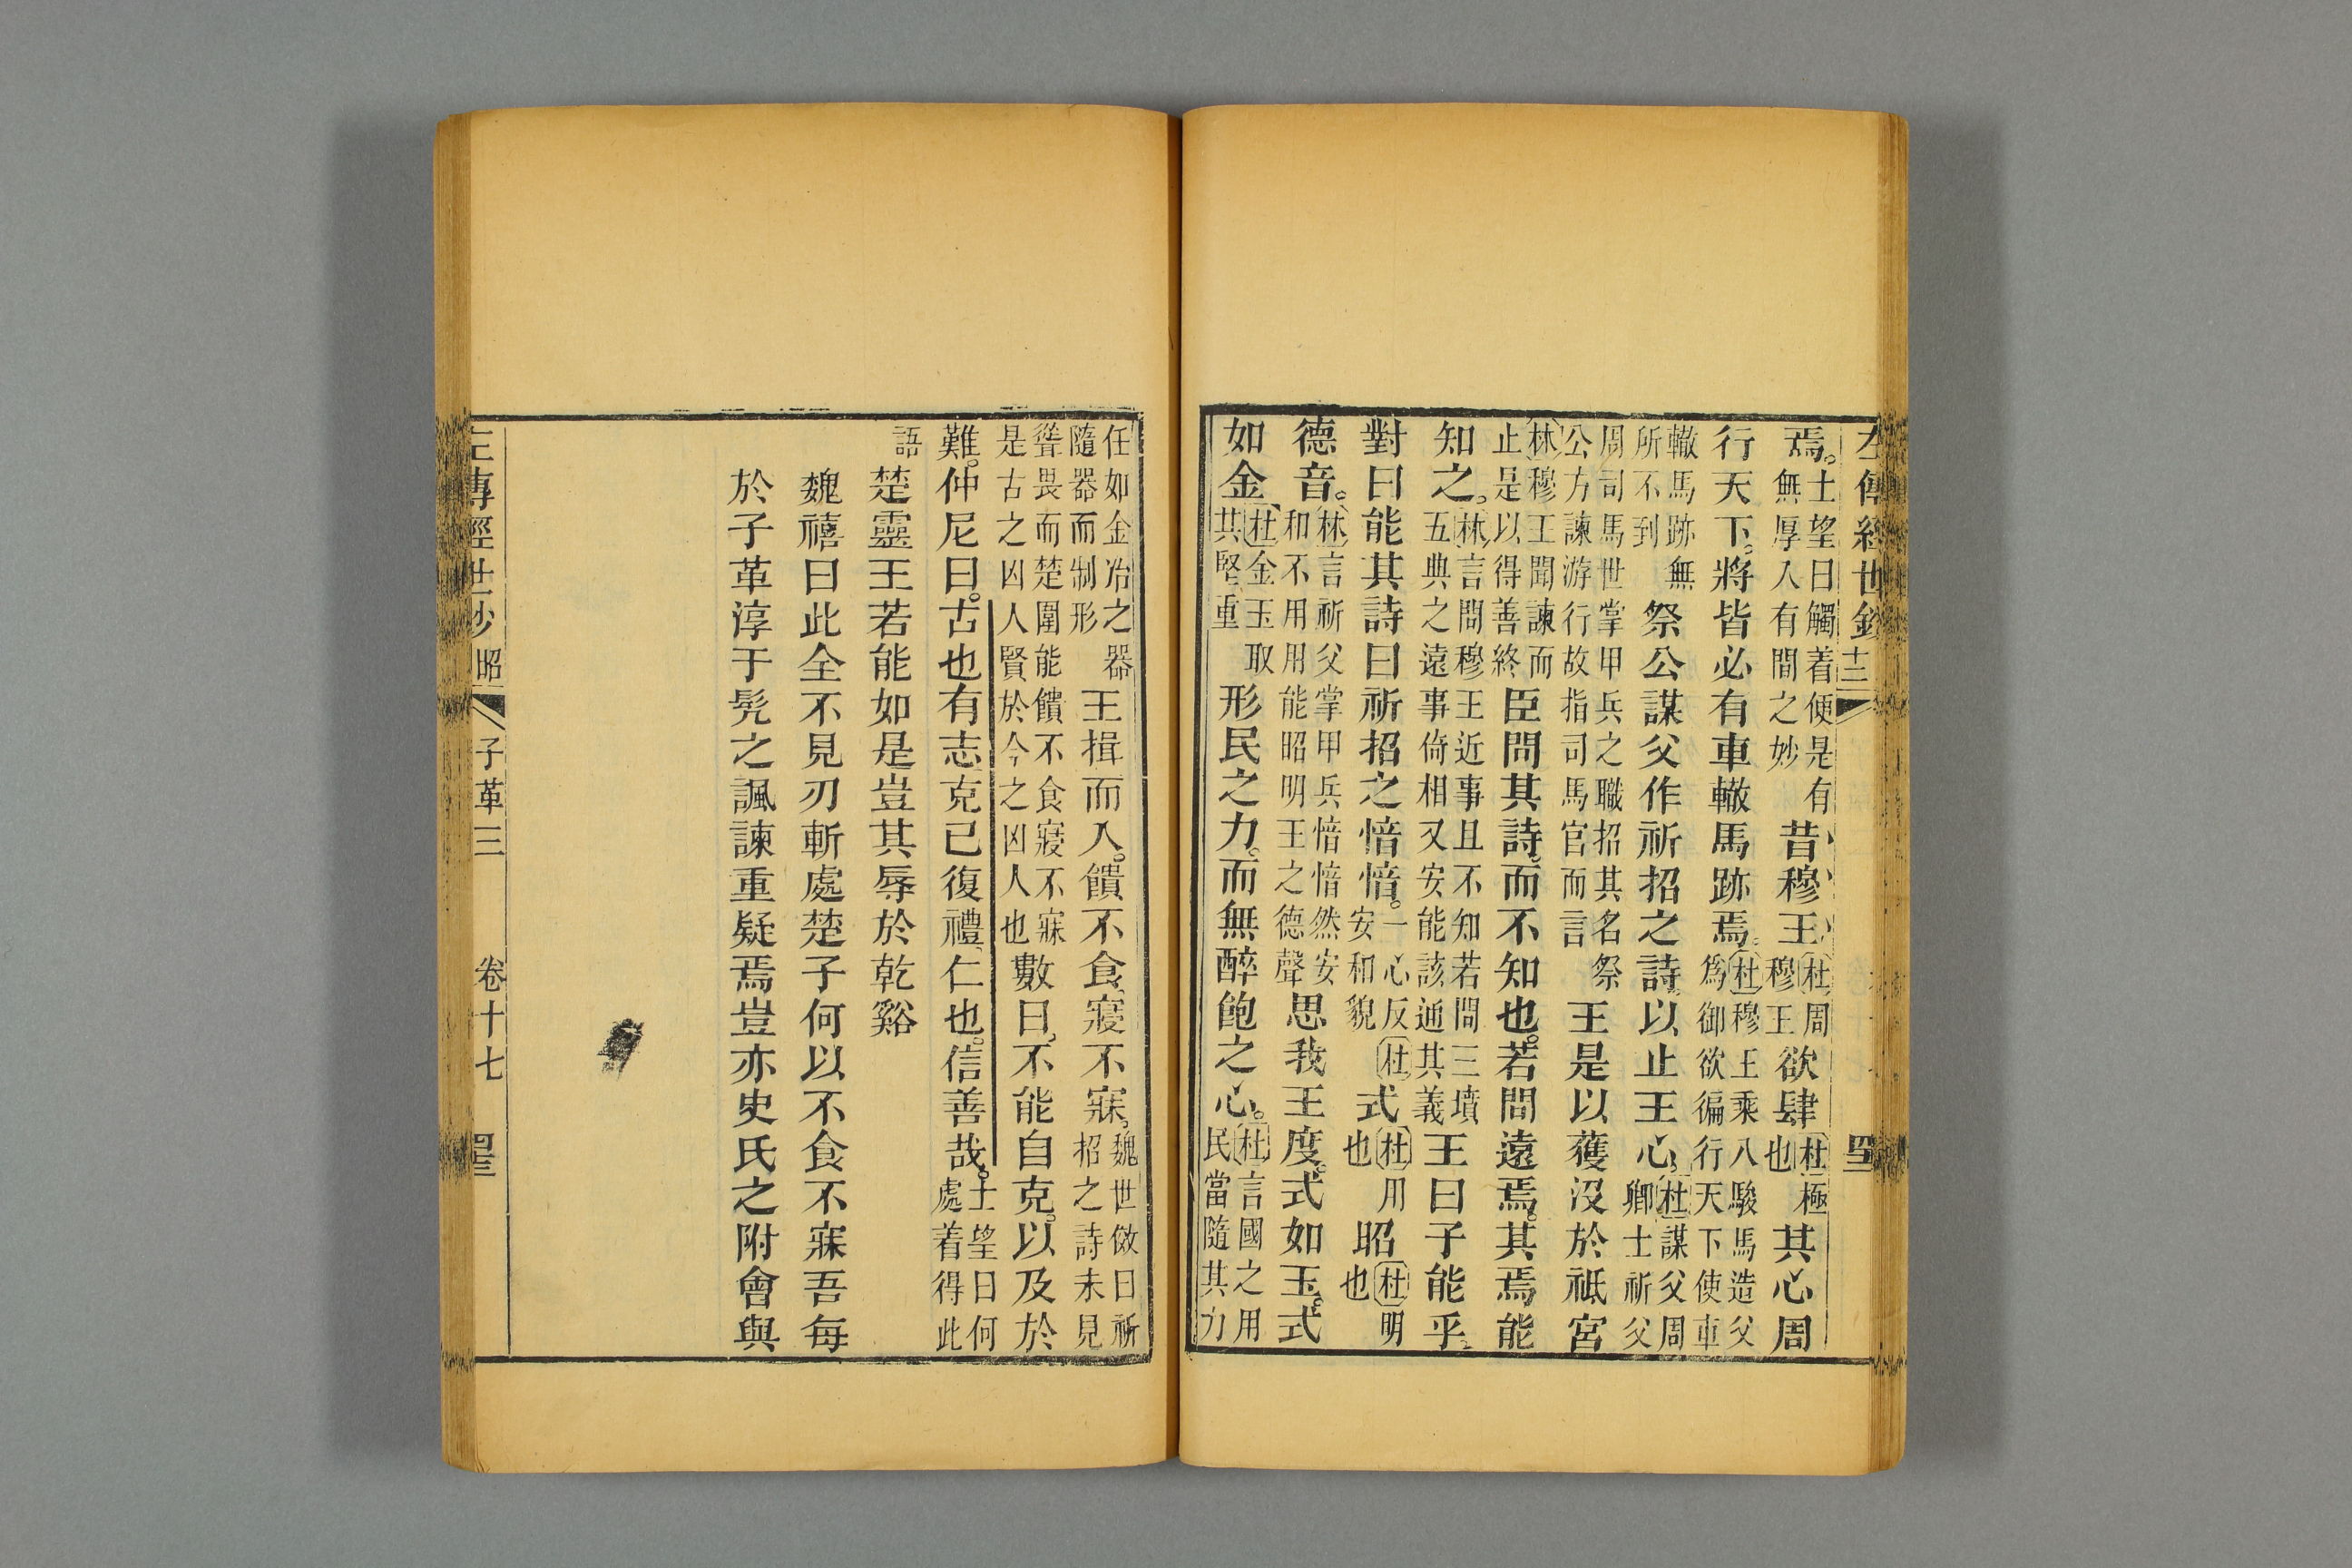 左傳經世鈔
焉。士望曰觸着便是有無厚入有間之妙昔穆王杜周穆王欲肆杜極也其心周
行天下。將皆必有車轍馬跡焉。杜穆王乘八駿馬造父為御欲徧行天下使車
轍馬跡無所不到祭公謀父作祈招之詩。以止王心。杜謀父周卿士祈父
周司馬世掌甲兵之職招其名祭公方諫游行故指司馬官而言王是以獲沒於祗宮
林穆王聞諫而止是以得善終臣問其詩。而不知也。若問遠焉。其焉能
知之。林言問穆王近事且不知若問三墳五典之遠事倚相又安能該通其義王曰子能乎。
對曰能其詩曰祈招之愔愔。一心反杜安和貌式杜用也昭杜明也
德音。林言祈父掌甲兵愔愔然安和不用用能昭明王之德聲思我王度。式如玉。式
如金杜金玉取其堅重形民之力。而無醉飽之心。杜言國之用民當隨其力
任如金冶之器隨器而制形王揖而入。饋不食寢不寐。魏世傚曰祈招之詩未見
聳畏而楚圍能饋不食寢不寐是古之凶人賢於今之凶人也數日。不能自克。以及於
難。仲尼曰。古也有志克己復禮、仁也。信善哉。士望曰何處着得此
語楚靈王若能如是豈其辱於乾谿
魏禧曰此全不見刃斬處楚子何以不食不寐吾每
於子革淳于髠之諷諫重疑焉豈亦史氏之附會與
左傳經世鈔 昭 子革三 卷十七